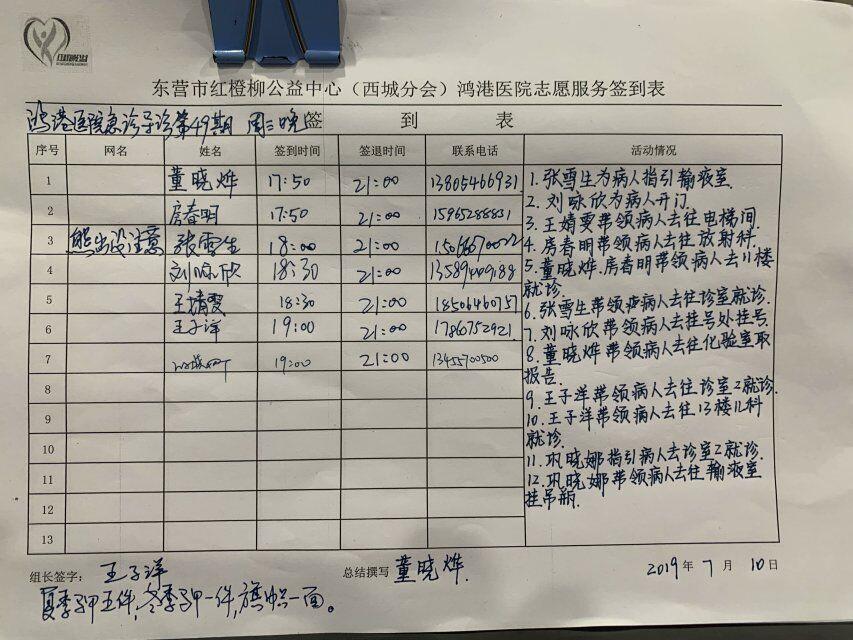 东营市红橙柳公益中心（西城分会）鸿港医院志愿服务签到表
鸿港医院急诊导诊第49期 周三晚 签 到 表
序号 网名 姓名 签到时间 签退时间 联系电话 活动情况
1 董晓烨 17:50 21:00 13805466931
2 房春明 17:50 21:00 15965288831
3 熊出没注意 张雪生 18:00 21:00
4 刘咏欣 18:30 21:00 13589409188
5 王婧雯 18:30 21:00 18506460757
6 王子洋 19:00 21:00 1786752921
7 19:00 21:00 13455700500
8
9
10
11
12
13
1. 张雪生为病人指引输液室.
2. 刘咏欣为病人开门.
3. 王婧雯带领病人去往电梯间.
4. 房春明带领病人去往放射科.
5. 董晓烨.房春明带领病人去11楼
就诊.
6. 张雪生带领病人去往诊室就诊.
7. 刘咏欣带领病人去挂号处挂号.
8. 董晓烨带领病人去往化验室取
报告.
9. 王子洋带领病人去往诊室2就诊.
10. 王子洋带领病人去往13楼儿科
就诊.
11. 巩晓娜指引病人去诊室2就诊.
12. 巩晓娜带领病人去往输液室
挂吊瓶.
组长签字： 王子洋 总结撰写 董晓烨. 2019 年 7 月 10 日
夏季马甲五件,冬季马甲一件,旗帜一面。